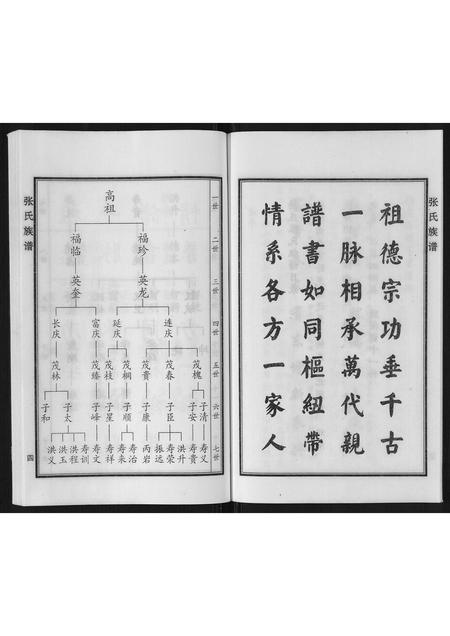 张氏族谱
祖德宗功垂千古
一脉相承萬代親
譜書如同樞紐帶
情系各方一家人
一世
高祖
二世
福珍
福临
三世
英龙
英奎
四世
连庆
延庆
富庆
长庆
五世
茂槐
茂春
茂贵
茂桐
茂枝
茂臻
茂林
六世
子清
子安
子臣
子康
子顺
子星
子峰
子太
子和
七世
寿义
寿贵
洪升
寿荣
振远
丙岩
寿治
寿来
寿祥
寿文
寿训
洪程
洪玉
洪义
张氏族谱
四